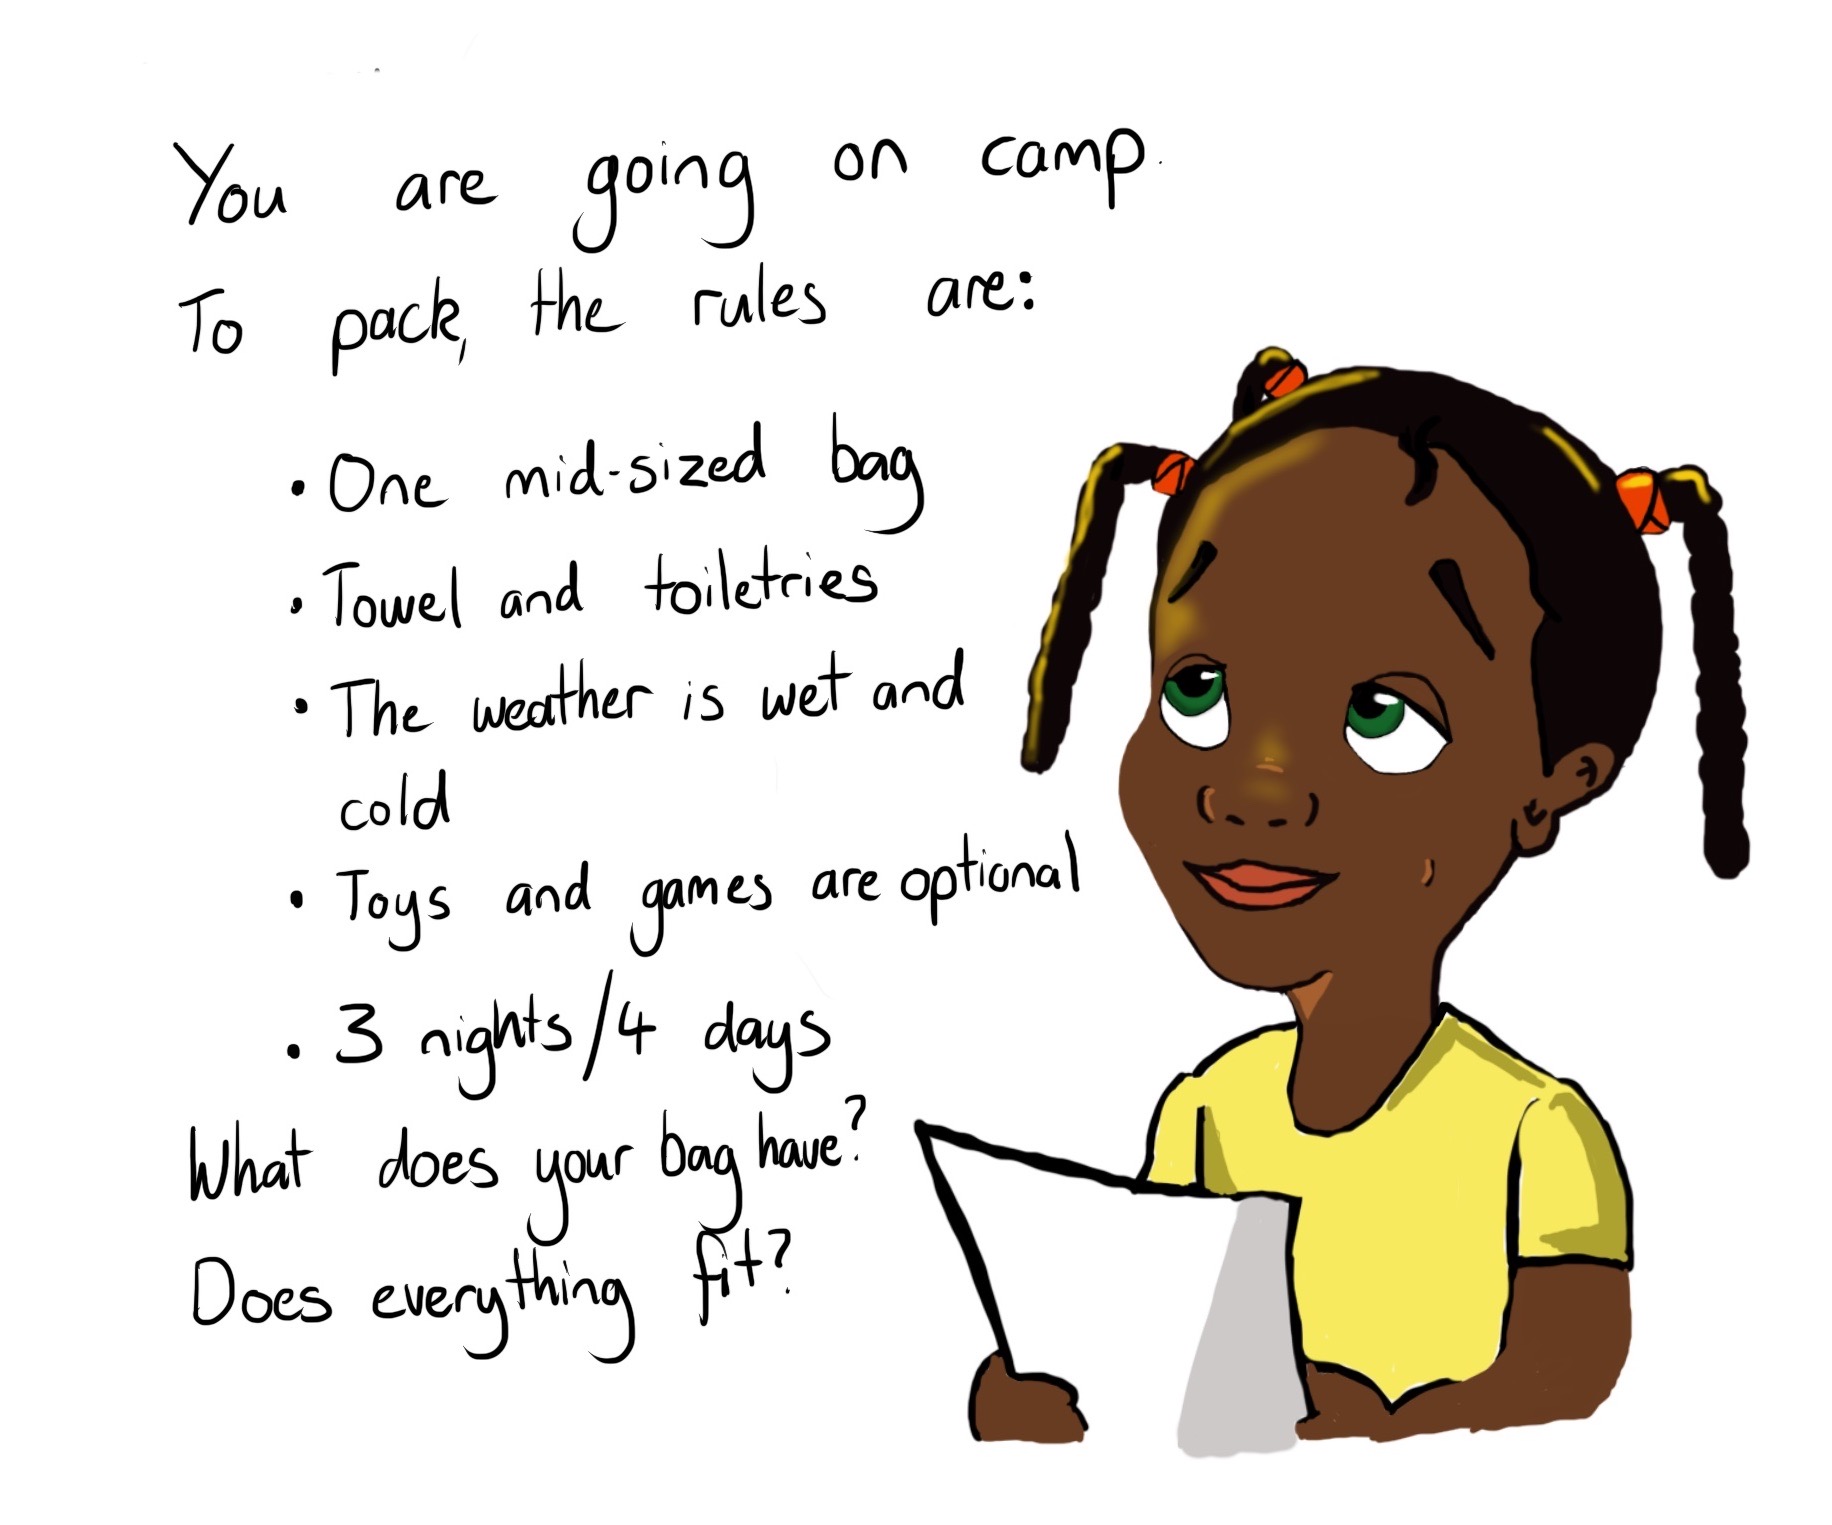 You are going on camp.
To pack, the rules are:
• One mid-sized bag
• Towel and toiletries
• The weather is wet and
cold
• Toys and games are optional
• 3 nights/4 days
What does your bag have?
Does everything fit?